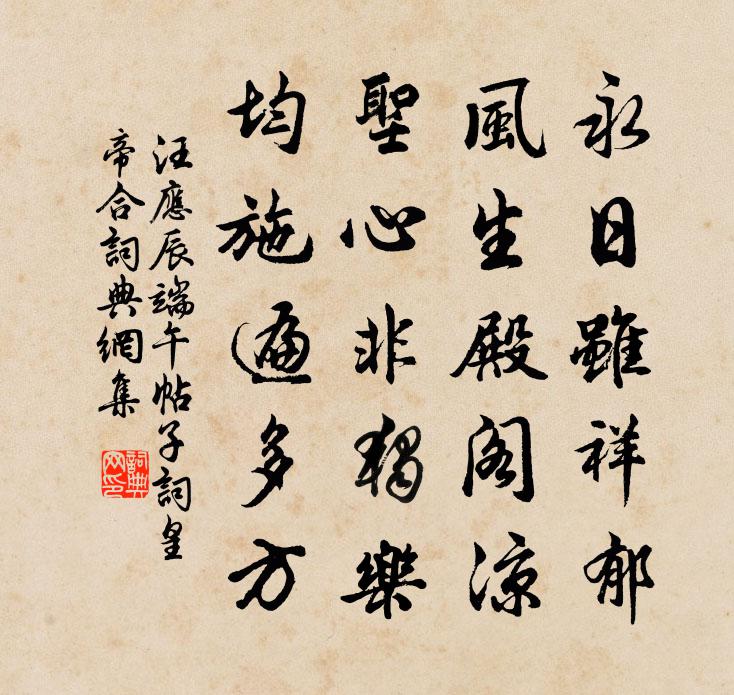 永日雖祥郁
風生殿阁凉
聖心非獨樂
均施遍多方
汪應辰端午帖子詞皇
帝合詞典網集
詞典网印